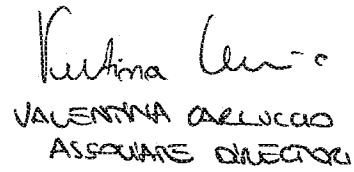 Valentina
VALENTINA CARLUCCIO
ASSOCIATE DIRECTOR